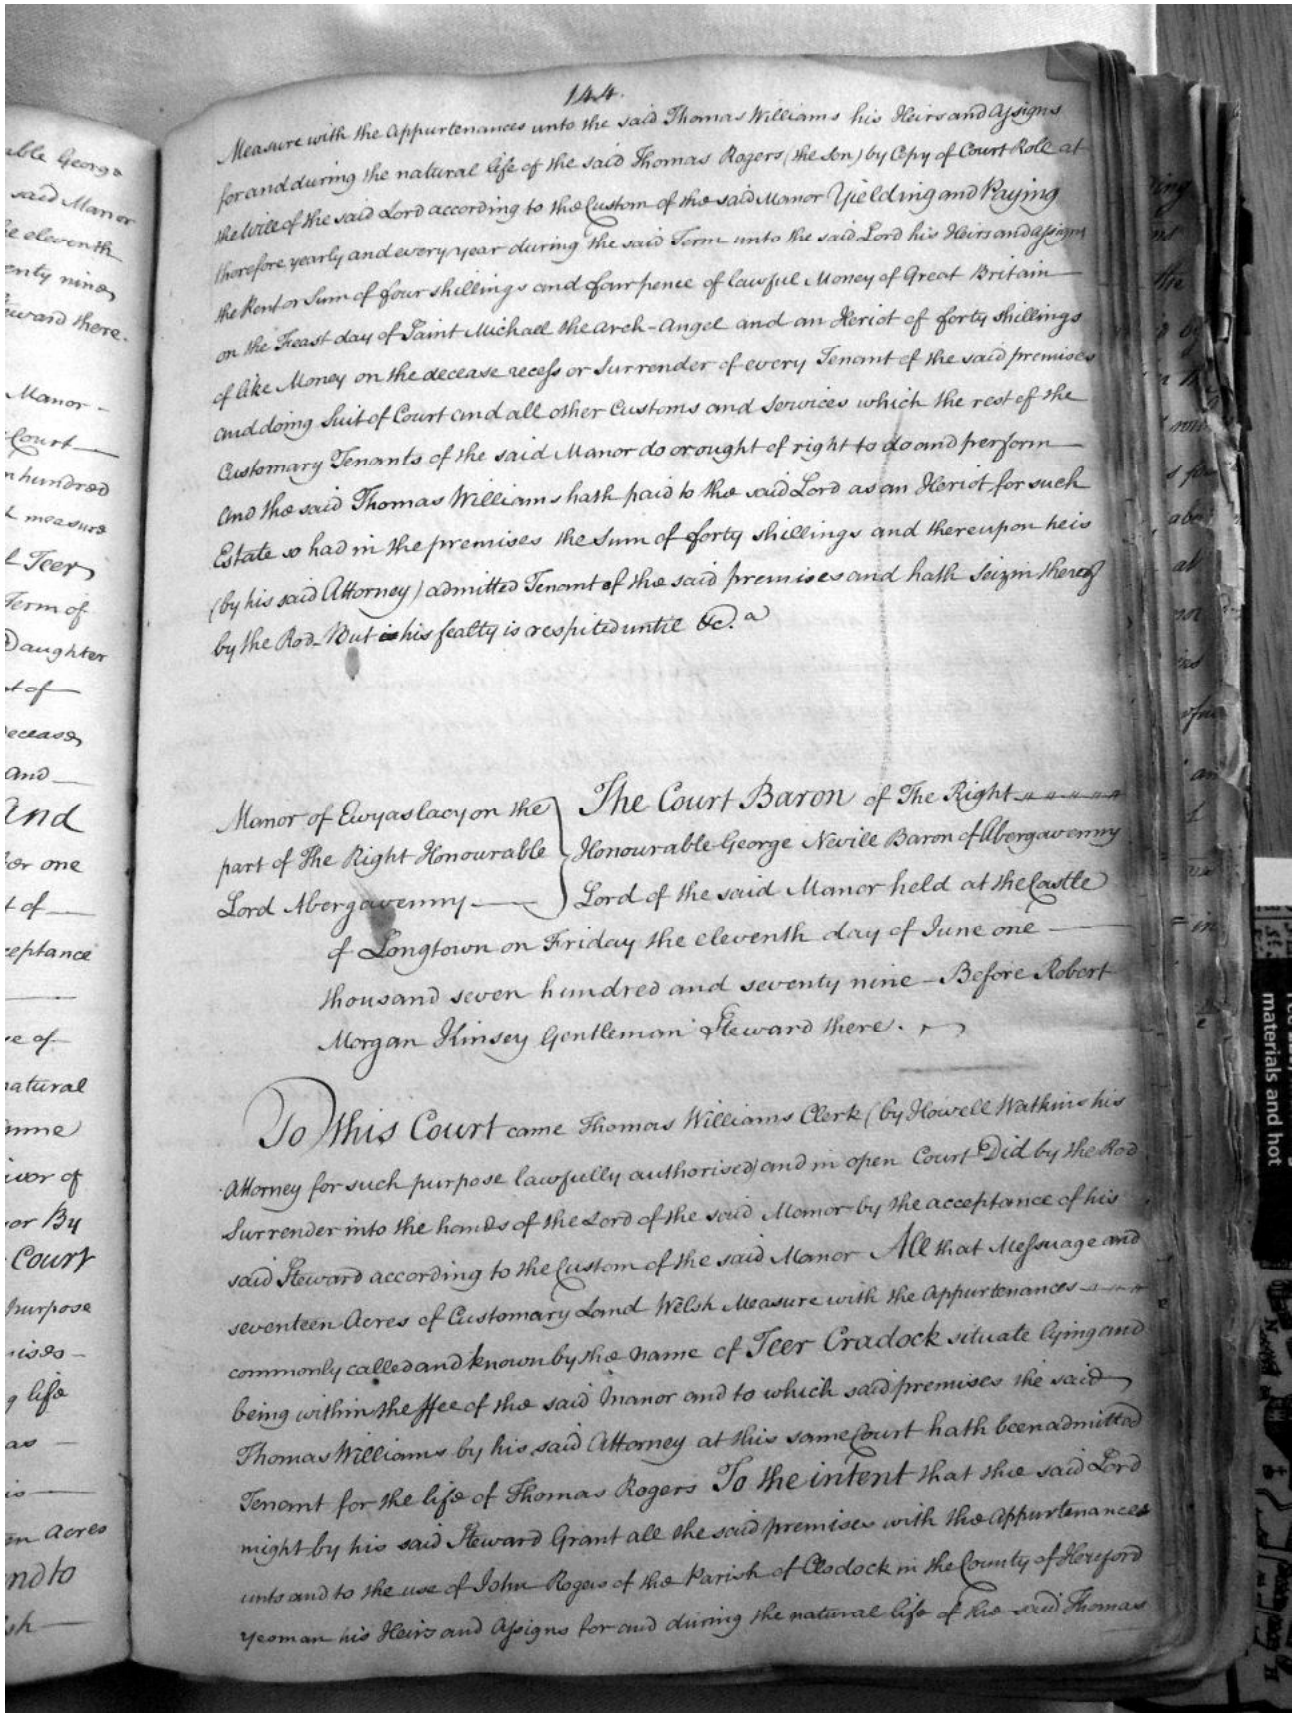 144.
Measure with the Appurtenances unto the said Thomas Williams his Heirs and Assigns
for and during the natural life of the said Thomas Rogers (the Son) by Copy of Court Roll at
the Will of the said Lord according to the Custom of the said Manor Yielding and Paying
therefore yearly and every year during the said Term unto the said Lord his Heirs and Assigns
the Rent or Sum of four shillings and four pence of lawful Money of Great Britain
on the Feast day of Saint Michael the Arch-Angel and an Heriot of forty shillings
of like Money on the decease recess or Surrender of every Tenant of the said premises
and doing Suit of Court and all other Customs and Services which the rest of the
Customary Tenants of the said Manor do or ought of right to do and perform
And the said Thomas Williams hath paid to the said Lord as an Heriot for such
Estate so had in the premises the Sum of forty shillings and thereupon he is
(by his said Attorney) admitted Tenant of the said premises and hath Seizin thereof
by the Rod. But his fealty is respited until &c.a
Manor of Ewyaslacy on the
part of The Right Honourable
Lord Abergavenny
The Court Baron of The Right
Honourable George Nevile Baron of Abergavenny
Lord of the said Manor held at the Castle
of Longtown on Friday the eleventh day of June one
thousand seven hundred and seventy nine - Before Robert
Morgan Kinsey Gentleman Steward there.
To this Court came Thomas Williams Clerk (by Howell Watkins his
Attorney for such purpose lawfully authorised) and in open Court Did by the Rod
Surrender into the hands of the Lord of the said Manor by the acceptance of his
said Steward according to the Custom of the said Manor All that Messuage and
seventeen Acres of Customary Land Welsh Measure with the Appurtenances
commonly called and known by the name of Teer Cradock situate lying and
being within the ffee of the said Manor and to which said premises the said
Thomas Williams by his said Attorney at this same Court hath been admitted
Tenant for the life of Thomas Rogers To the intent that the said Lord
might by his said Steward Grant all the said premises with the Appurtenances
unto and to the use of John Rogers of the Parish of Clodock in the County of Hereford
Yeoman his Heirs and Assigns for and during the natural life of the said Thomas
able George
said Manor
eleventh
enty nine
teward there.
Manor -
Court
hundred
measure
Teer
Term of
Daughter
of
decease
and
And
one
of
ceptance
of
natural
ivor of
or By
Court
Purpose
life
as
Acres
nd to
materials and hot